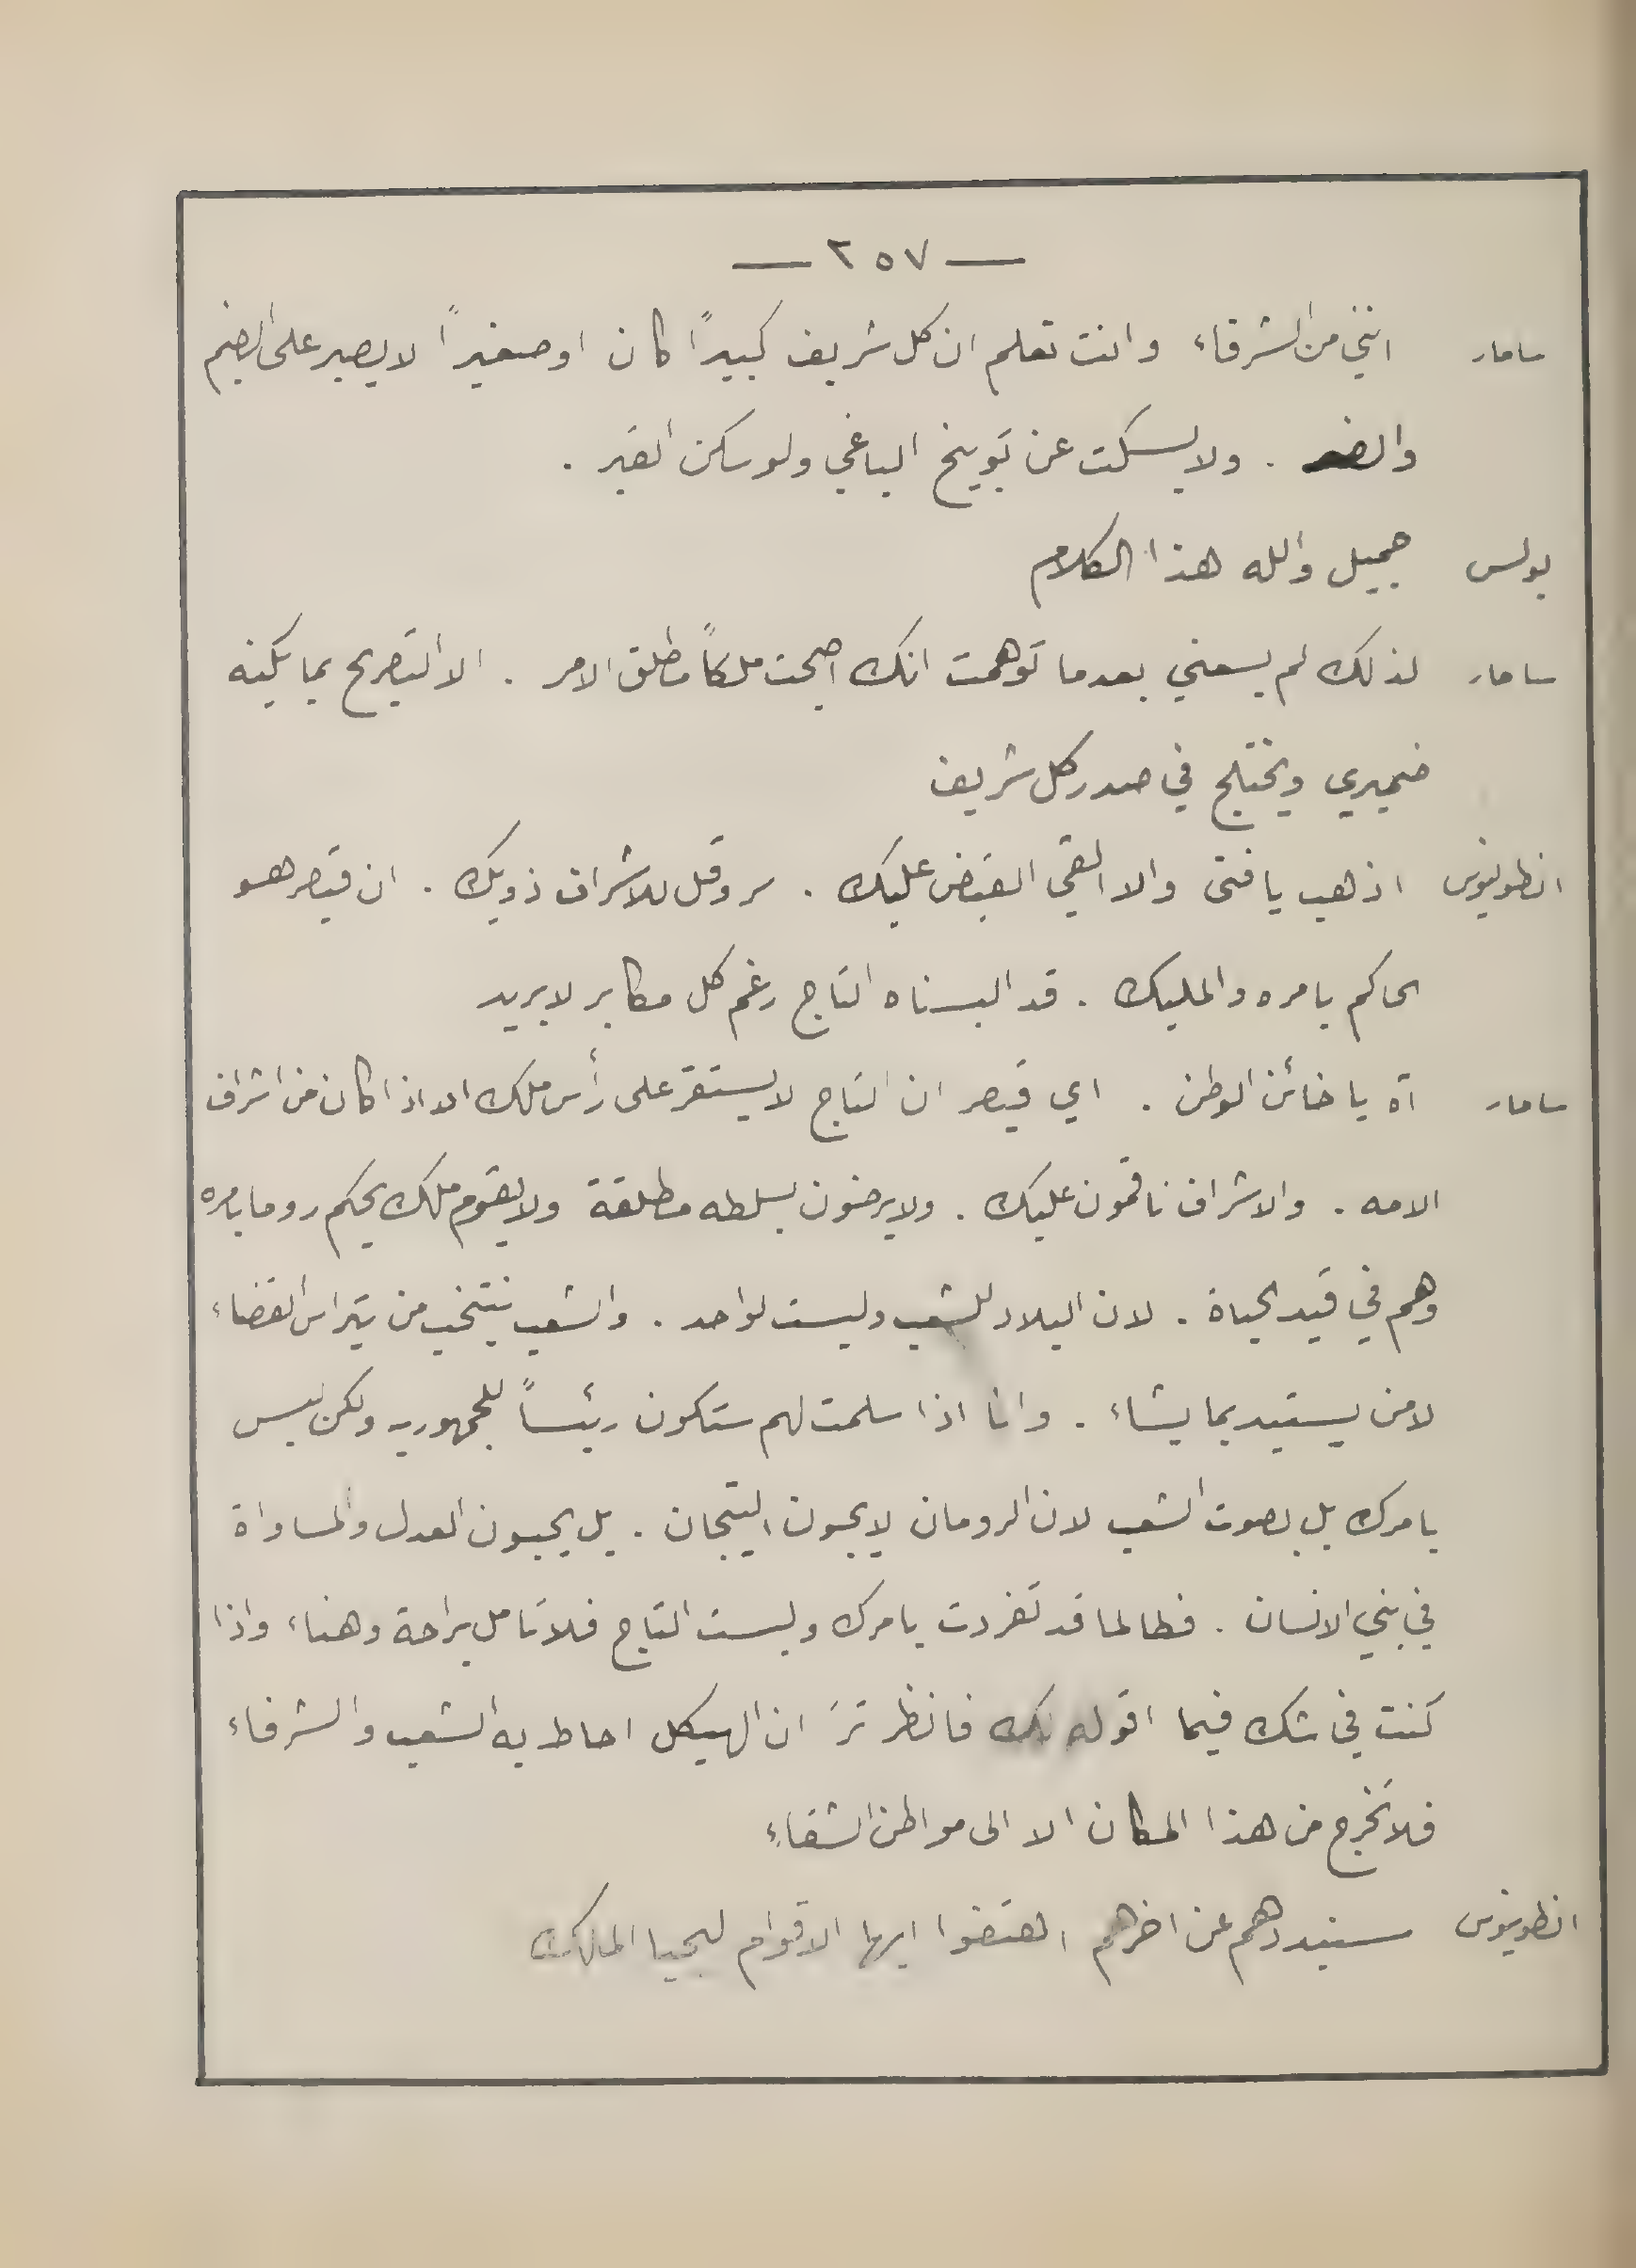 — ٢٥٧ —
سامار انني من الشرفاء وانت تعلم ان كل شريف كبيراً كان او صغيراً لا يصبر على الضيم
والضر . ولا يسكت عن توبيخ الباغي ولو سكن القبر .
بولس جميل والله هذا الكلام
سامار لذلك لم يسعني بعدما توهمت انك اصبحت ملكاً مطلق الامر . الا التصريح بما يكنه
ضميري ويختلج في صدر كل شريف
انطونيوس اذهب يا فتى والا القي القبض عليك . سر وقل للاشراف ذويك . ان قيصر هو
الحاكم بامره والمليك . قد البسناه التاج رغم كل مكابر لا يريد
سامار آه يا خائن الوطن . اي قيصر ان التاج لا يستقر على رأس ملك الا اذا كان من اشراف
الامه . والاشراف ناقمون عليك . ولا يرضون بسلطه مطلقة ولا يقوم ملك يحكم روما بامره
وهم في قيد الحياة . لان البلاد للشعب وليست لواحد . والشعب ينتخب من يترأس القضاء
لا من يستبد بما يشاء . وانا اذا سلمت لهم ستكون رئساً للجمهوريه ولكن ليس
بامرك بل بصوت الشعب لان الرومان لا يحبون التيجان . بل يحبون العدل والمساواة
في بني الانسان . فطالما قد تفردت بامرك ولبست التاج فلا تامل براحة وهناء واذا
كنت في شك فيما اقوله لك فانظر ترَ ان الهيكل احاط به الشعب والشرفاء
فلا تخرج من هذا المكان الا الى مواطن الشقاء
انطونيوس سنبددهم عن اخرهم اهتفوا ايها الاقوام ليحيا الملك